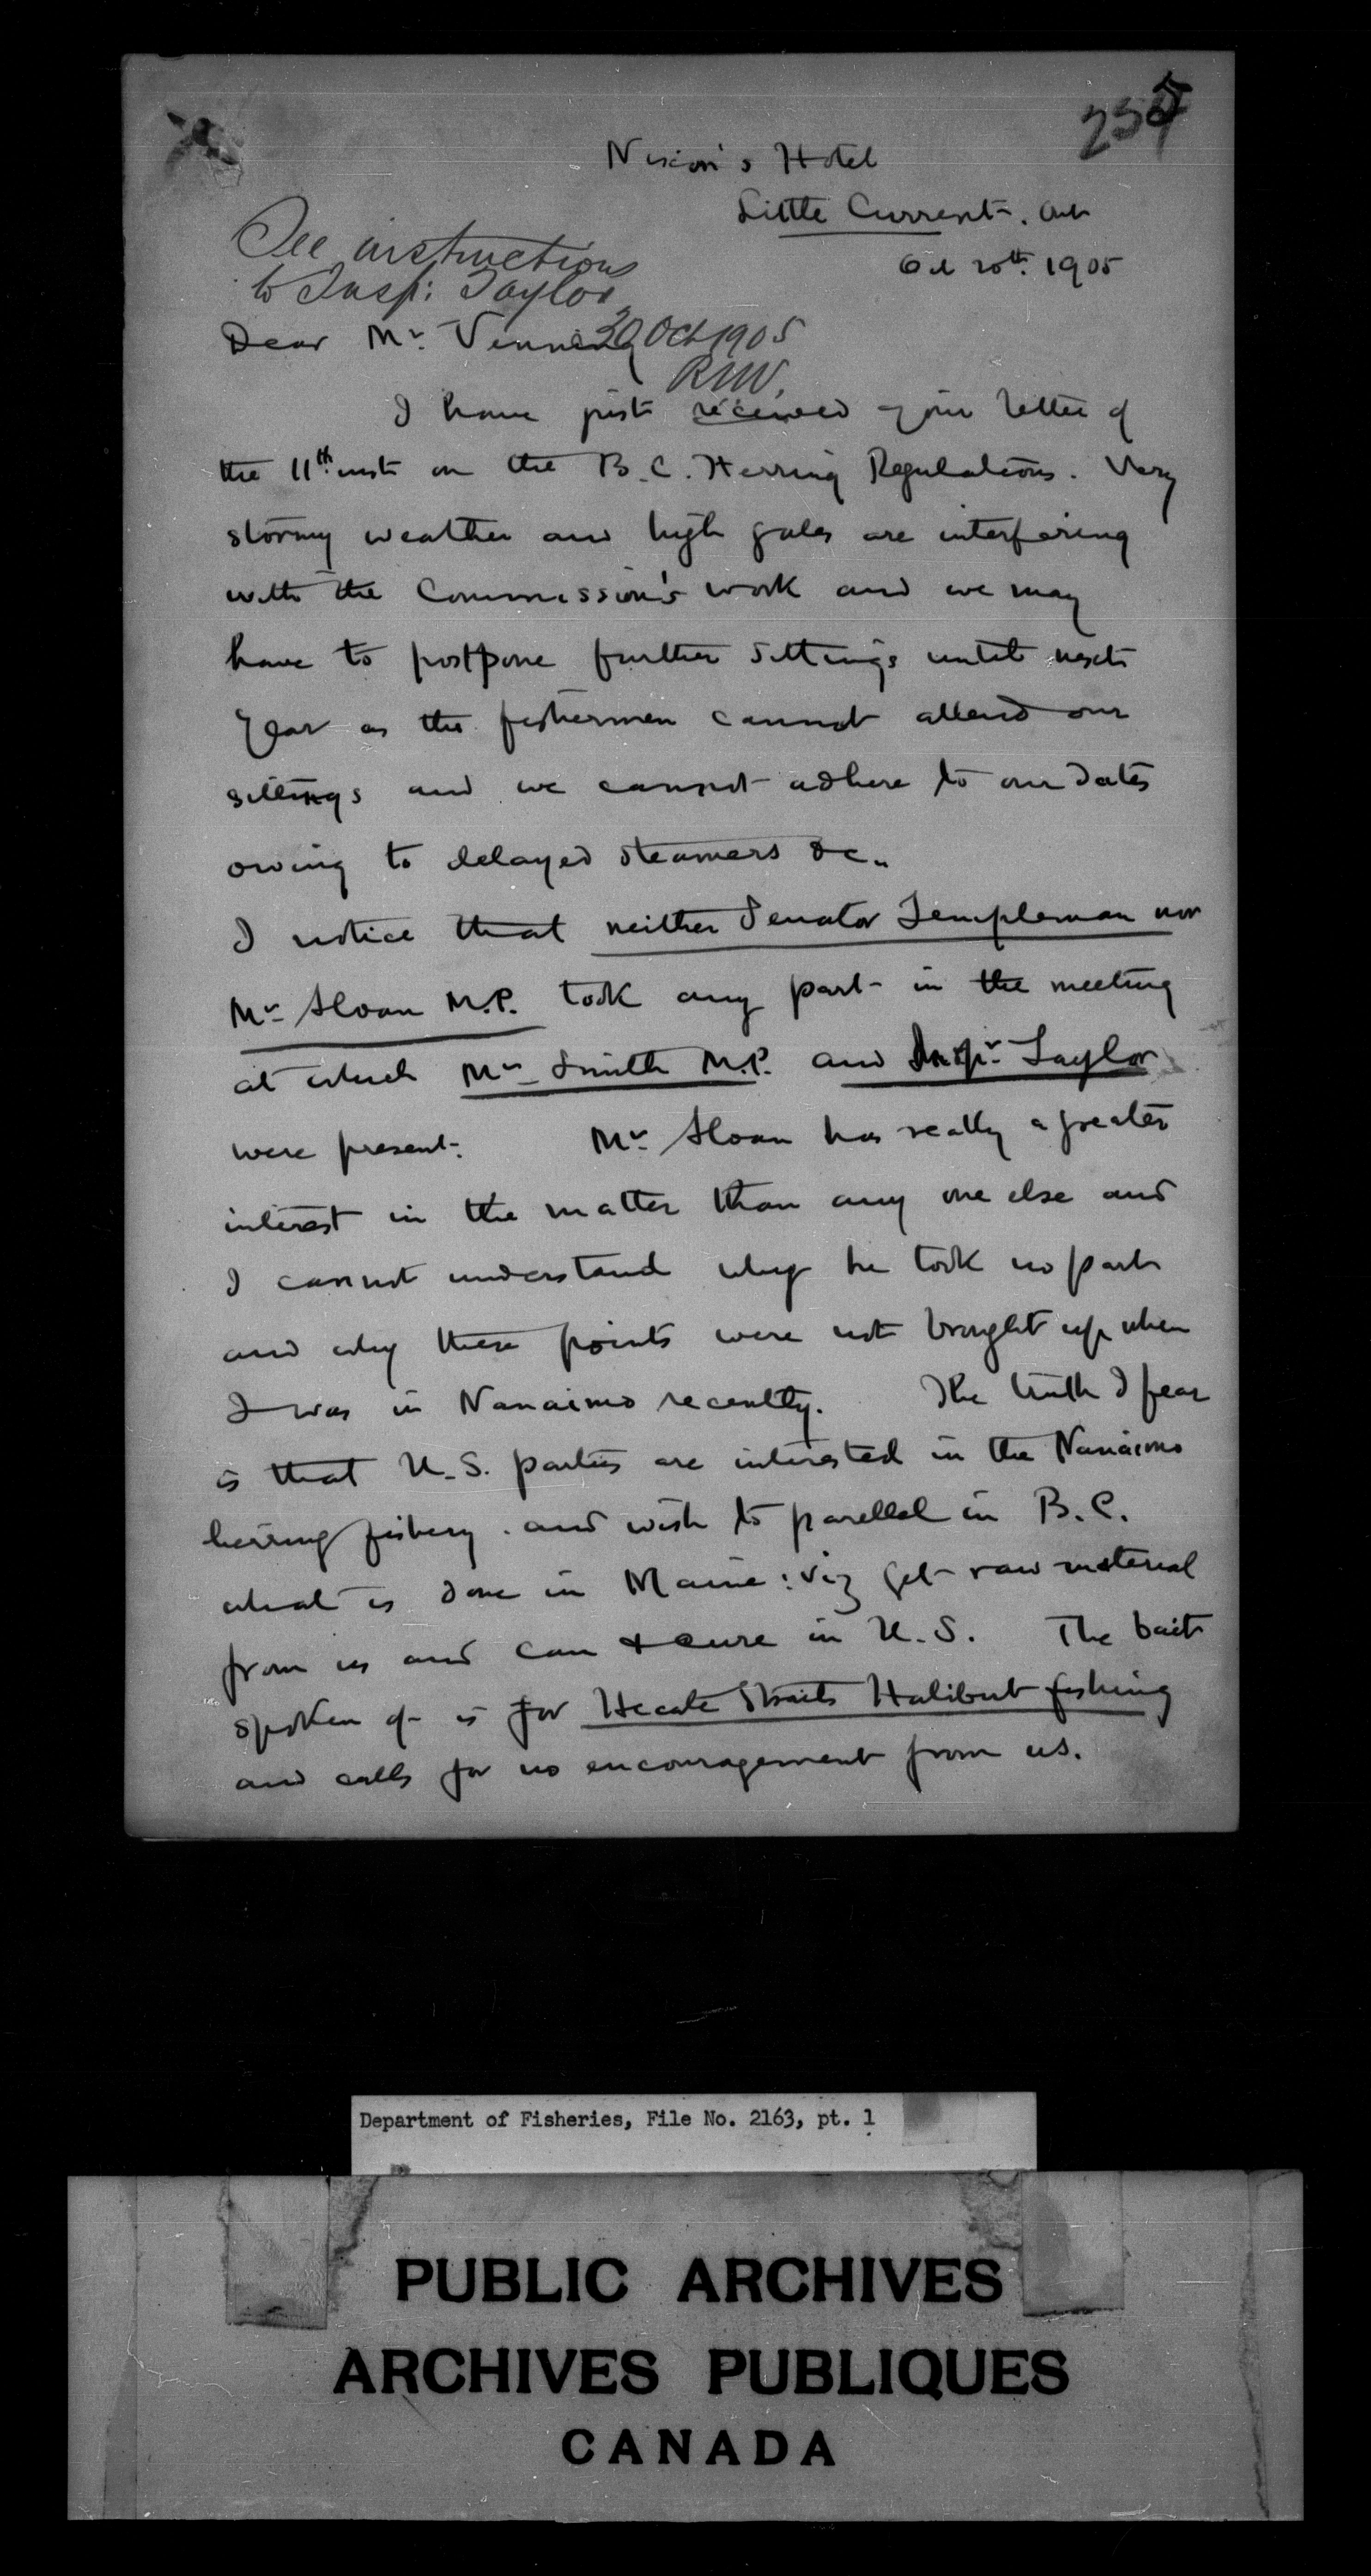 Nixon's Hotel
Little Current. Ont
Oct 20th. 1905
See instructions
to Insp: Taylor
30 Oct 1905
RNV.
Dear Mr. Venning
I have just received your letter of
the 11th inst on the B.C. Herring Regulations. Very
stormy weather and high gales are interfering
with the Commission's work and we may
have to postpone further sittings until next
year as the fishermen cannot attend our
sittings and we cannot adhere to our dates
owing to delayed steamers &c..
I notice that neither Senator Templeman nor
Mr. Sloan M.P. took any part in the meeting
at which Mr. Smith M.P. and Inspr. Taylor
were present. Mr. Sloan has really a greater
interest in the matter than any one else and
I cannot understand why he took no part
and why these points were not brought up when
I was in Nanaimo recently. The truth I fear
is that U.S. parties are interested in the Nanaimo
herring fishery. and wish to parellel in B.C.
what is done in Maine: viz get raw material
from us and can & cure in U.S. The bait
spoken of is for Hecate Straits Halibut fishing
and calls for no encouragement from us.
Department of Fisheries, File No. 2163, pt. 1
PUBLIC ARCHIVES
ARCHIVES PUBLIQUES
CANADA